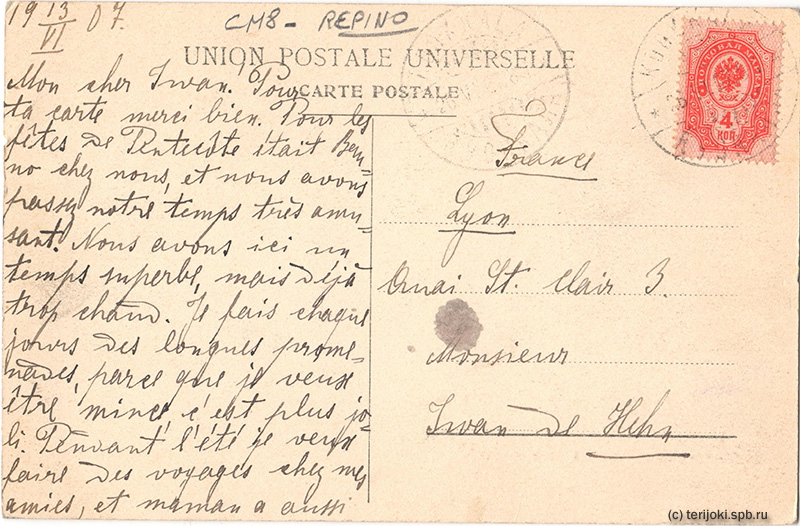 19 13/VI 07.
СМ8 - REPINO
UNION POSTALE UNIVERSELLE
CARTE POSTALE
Mon cher Iwan. Pour
ta carte merci bien. Pour les
fêtes de Pentecôte était Ben-
no chez nous, et nous avons
passer notre temps très amu-
sant. Nous avons ici un
temps superbe, mais déjà
trop chaud. Je fais chaque
jours des longues prome-
nades, parce que je veux
être mince c'est plus jo-
li. Pendant l'été je veux
faire des voyages chez mes
amies, et maman a aussi
France
Lyon
Quai St. Clair 3.
Monsieur
Iwan de Hehn
ПОЧТОВАЯ МАРКА
4
КОП
(c) terijoki.spb.ru